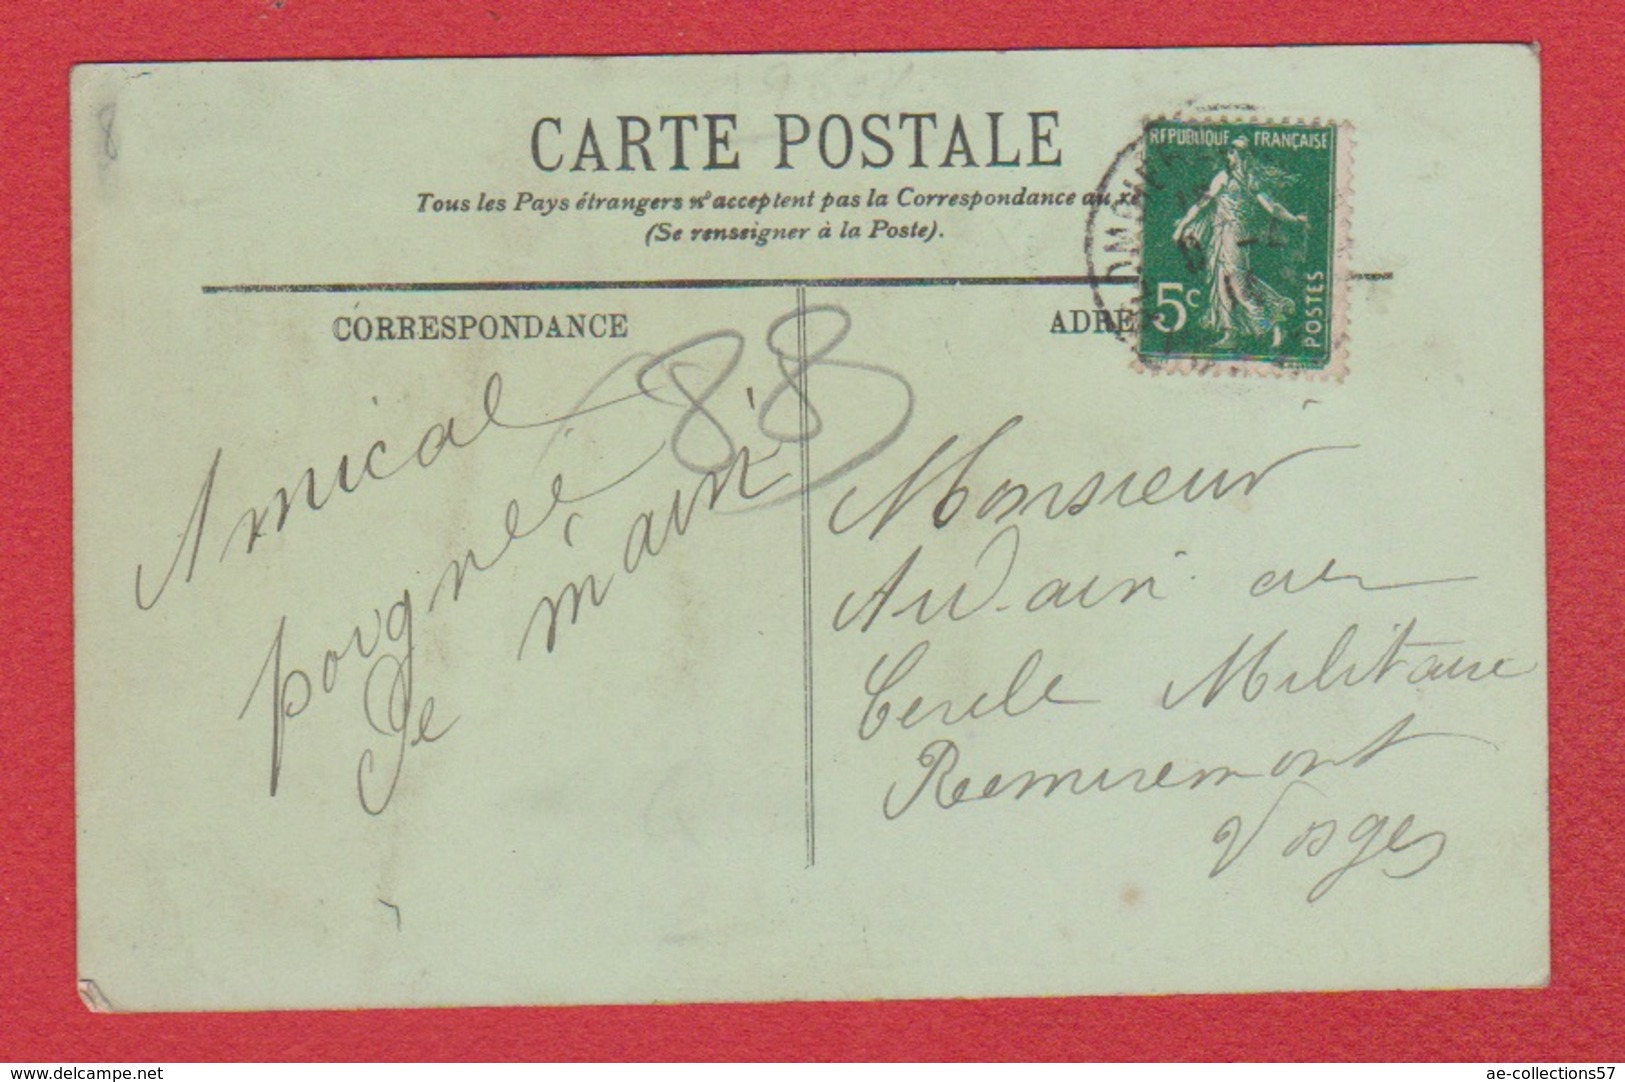 CARTE POSTALE
Tous les Pays étrangers n'acceptent pas la Correspondance au
(Se renseigner à la Poste).
CORRESPONDANCE
ADRE
REPUBLIQUE FRANÇAISE
5c
POSTES
8
88
Amical
poignée
de main
Monsieur
au
Cercle Militaire
Remiremont
Vosges
delcampe.net
ae-collections57